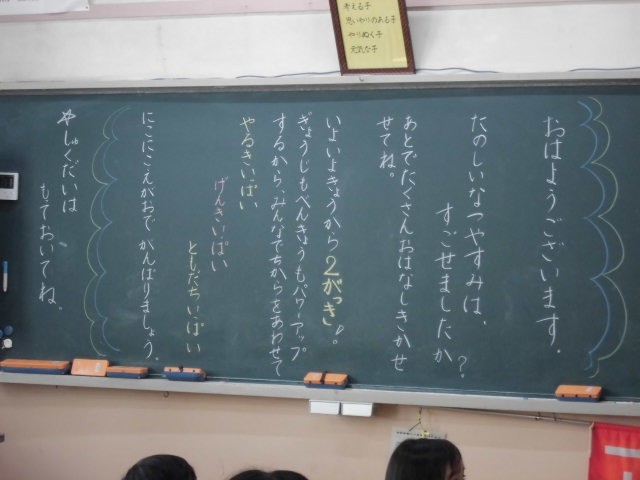 考える子
思いやりのある子
やりぬく子
元気な子
おはようございます.
たのしいなつやすみは、
すごせましたか?
あとでたくさんおはなしきかせ
せてね。
いよいよきょうから2がっき♪。
ぎょうじもべんきょうもパワーアップ
するから、みんなでちからをあわせて
やるきいぱい
げんきいぱい
ともだちいぱい
にこにこえがおで がんばりましょう.
やしゅくだいは
もておいてね。